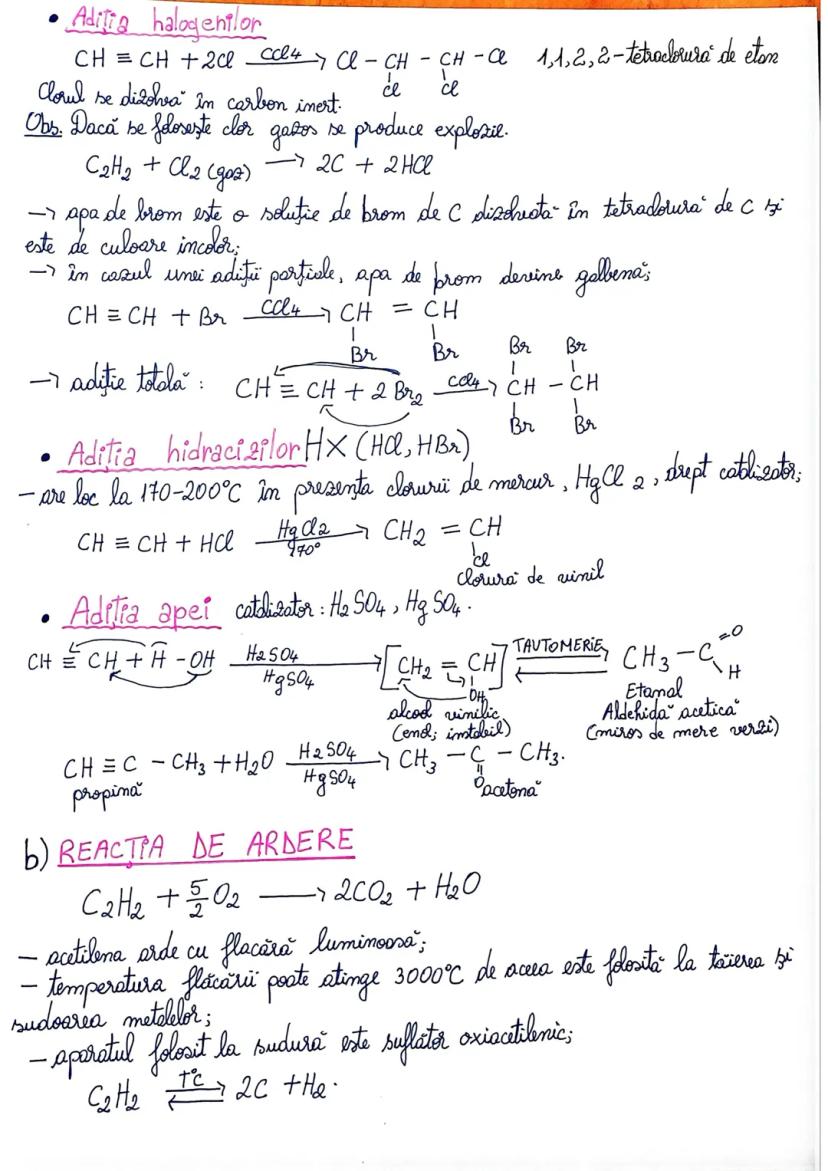 • Adiția halogenilor
CH ≡ CH + 2Cl —CCl4→ Cl - CH - CH - Cl 1,1,2,2-tetraclorură de etan
Cl Cl
Clorul se dizolvă în carbon inert.
Obs. Dacă se folosește clor gazos se produce explozie.
C2H2 + Cl2 (gaz) → 2C + 2HCl
→ apa de brom este o soluție de brom de C dizolvată în tetraclorură de C și
este de culoare incolor;
→ în cazul unei adiții parțiale, apa de brom devine galbenă;
CH ≡ CH + Br —CCl4→ CH = CH
Br Br Br Br
→ adiție totală: CH ≡ CH + 2 Br2 —CCl4→ CH - CH
Br Br
• Adiția hidracizilor HX (HCl, HBr)
- are loc la 170-200°C în prezența clorurii de mercur, HgCl2, drept catalizator;
CH ≡ CH + HCl —HgCl2 / 170°→ CH2 = CH
Cl
Clorură de vinil
• Adiția apei catalizator: H2SO4, HgSO4.
CH ≡ CH + H - OH —H2SO4 / HgSO4→ [CH2 = CH] TAUTOMERIE ⇄ CH3 - C =O
OH H
alcool vinilic Etanal
(enol; instabil) Aldehidă acetică
(miros de mere verzi)
CH ≡ C - CH3 + H2O —H2SO4 / HgSO4→ CH3 - C - CH3.
propină O acetonă
b) REACȚIA DE ARDERE
C2H2 + 5/2 O2 → 2CO2 + H2O
- acetilena arde cu flacără luminoasă;
- temperatura flăcării poate atinge 3000°C de aceea este folosită la tăierea și
sudoarea metalelor;
- aparatul folosit la sudură este suflător oxiacetilenic;
C2H2 ⇄ T°C 2C + H2.